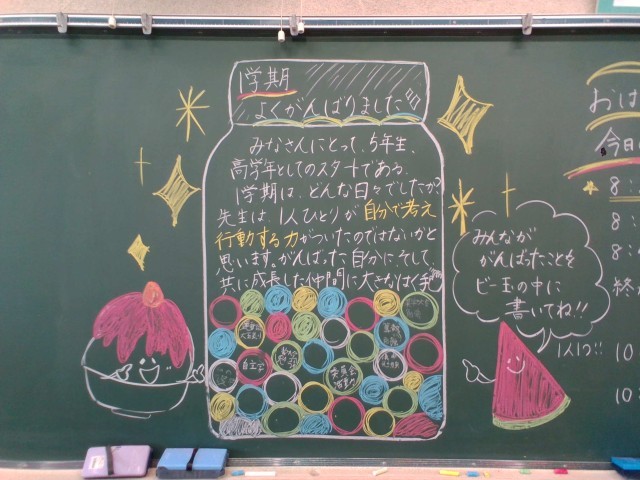 1学期
よくがんばりました
みなさんにとって、5年生、
高学年としてのスタートである、
1学期は、どんな日々でしたか?
先生は、1人ひとりが自分で考え
行動する力がついたのではないかと
思います。がんばった自分に、そして、
共に成長した仲間に大きなはく手
自主学
委員会
活動
みんなが
がんばったことを
ビー玉の中に
書いてね!!
1人1つ!!
おは
今日
8:
8:
8:
終
10
10: